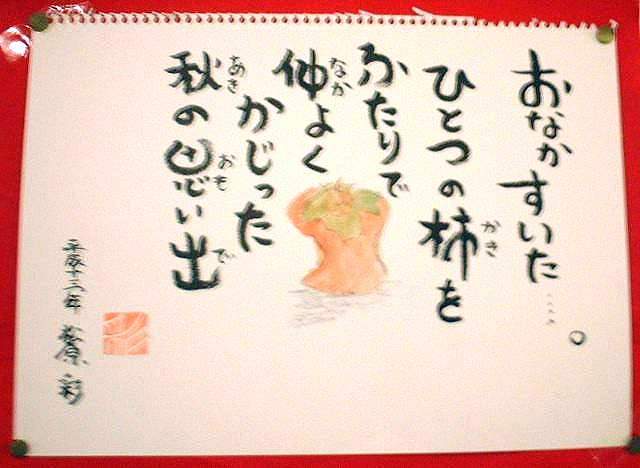 おなかすいた……。
ひとつの柿を
かき
ふたりで
仲よく
なか
かじった
秋の思い出
あき
おも
で
平成十三年
原 彩